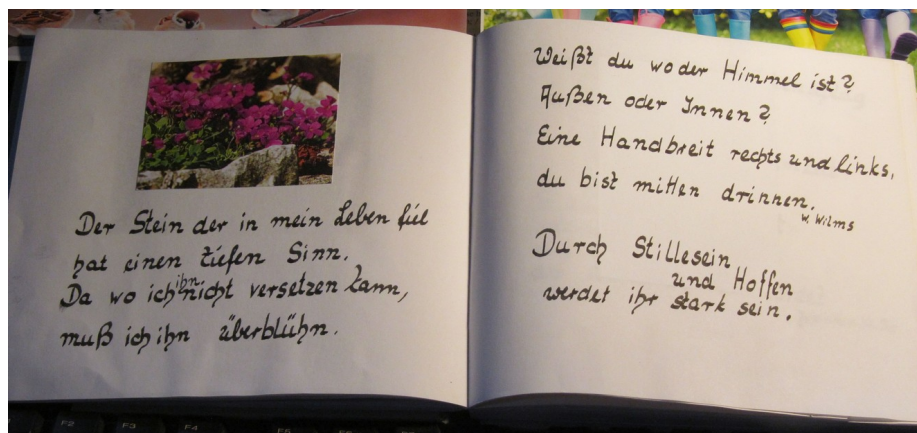 Der Stein der in mein Leben fiel
hat einen tiefen Sinn.
Da wo ich ihn nicht versetzen kann,
muß ich ihn überblühn.
Weißt du wo der Himmel ist?
Außen oder Innen?
Eine Handbreit rechts und links,
du bist mitten drinnen.
W. Wilms
Durch Stillesein
und Hoffen
werdet ihr stark sein.
F2
F3
F4